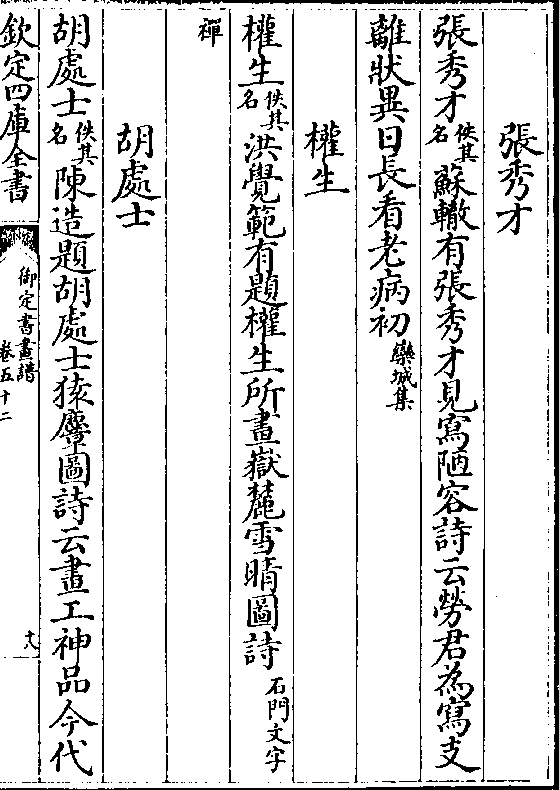 張秀才
張秀才佚其名蘇轍有張秀才見寫陋容詩云勞君為寫支
離狀異日長看老病初欒城集
權生
權生佚其名洪覺範有題權生所畫嶽麓雪晴圖詩石門文字
禪
胡處士
胡處士佚其名陳造題胡處士猿麞圖詩云畫工神品今代
欽定四庫全書
御定書畫譜
卷五十二
十八